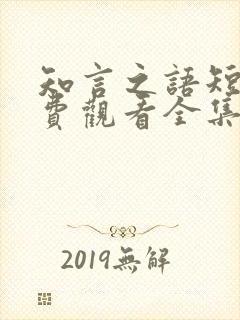 知言之語短
費觀看全集
2019無解